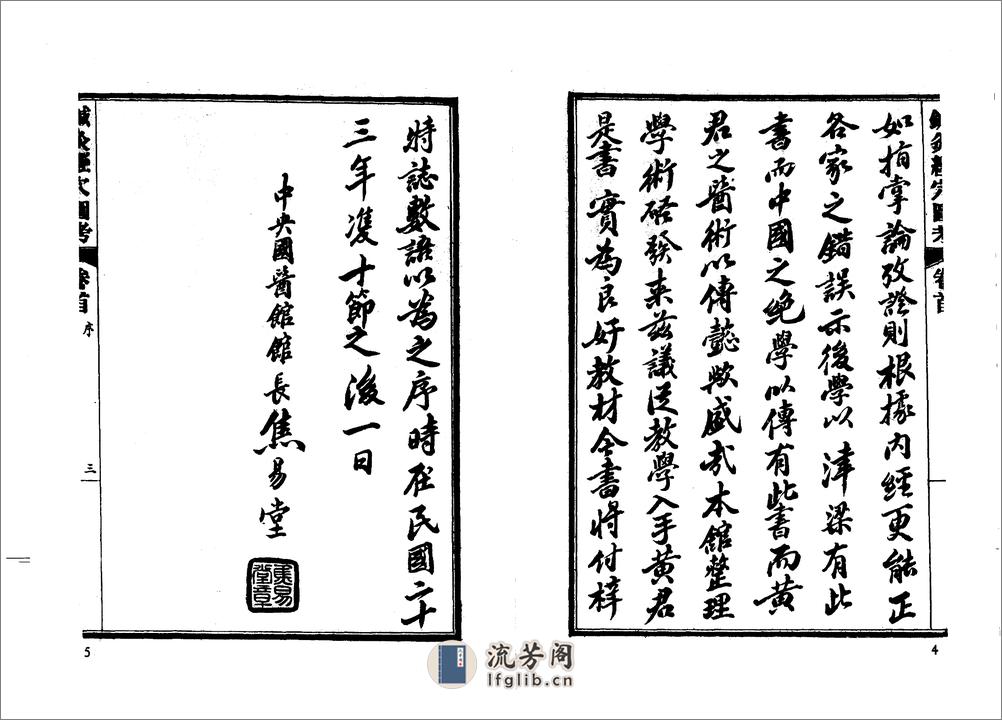 鍼灸經穴圖考 卷首
如指掌論攷證則根據內經更能正
各家之錯誤示後學以津梁有此
書而中國之絕學以傳有此書而黃
君之醫術以傳懿歟盛哉本館整理
學術啓發来兹議從教學入手黃君
是書實為良好教材全書將付梓
4
時誌數語以為之序時在民國二十
三年雙十節之後一日
中央國醫館館長焦易堂
焦易堂章
鍼灸經穴圖考 卷首 序 三
5
流芳阁
lfglib.cn